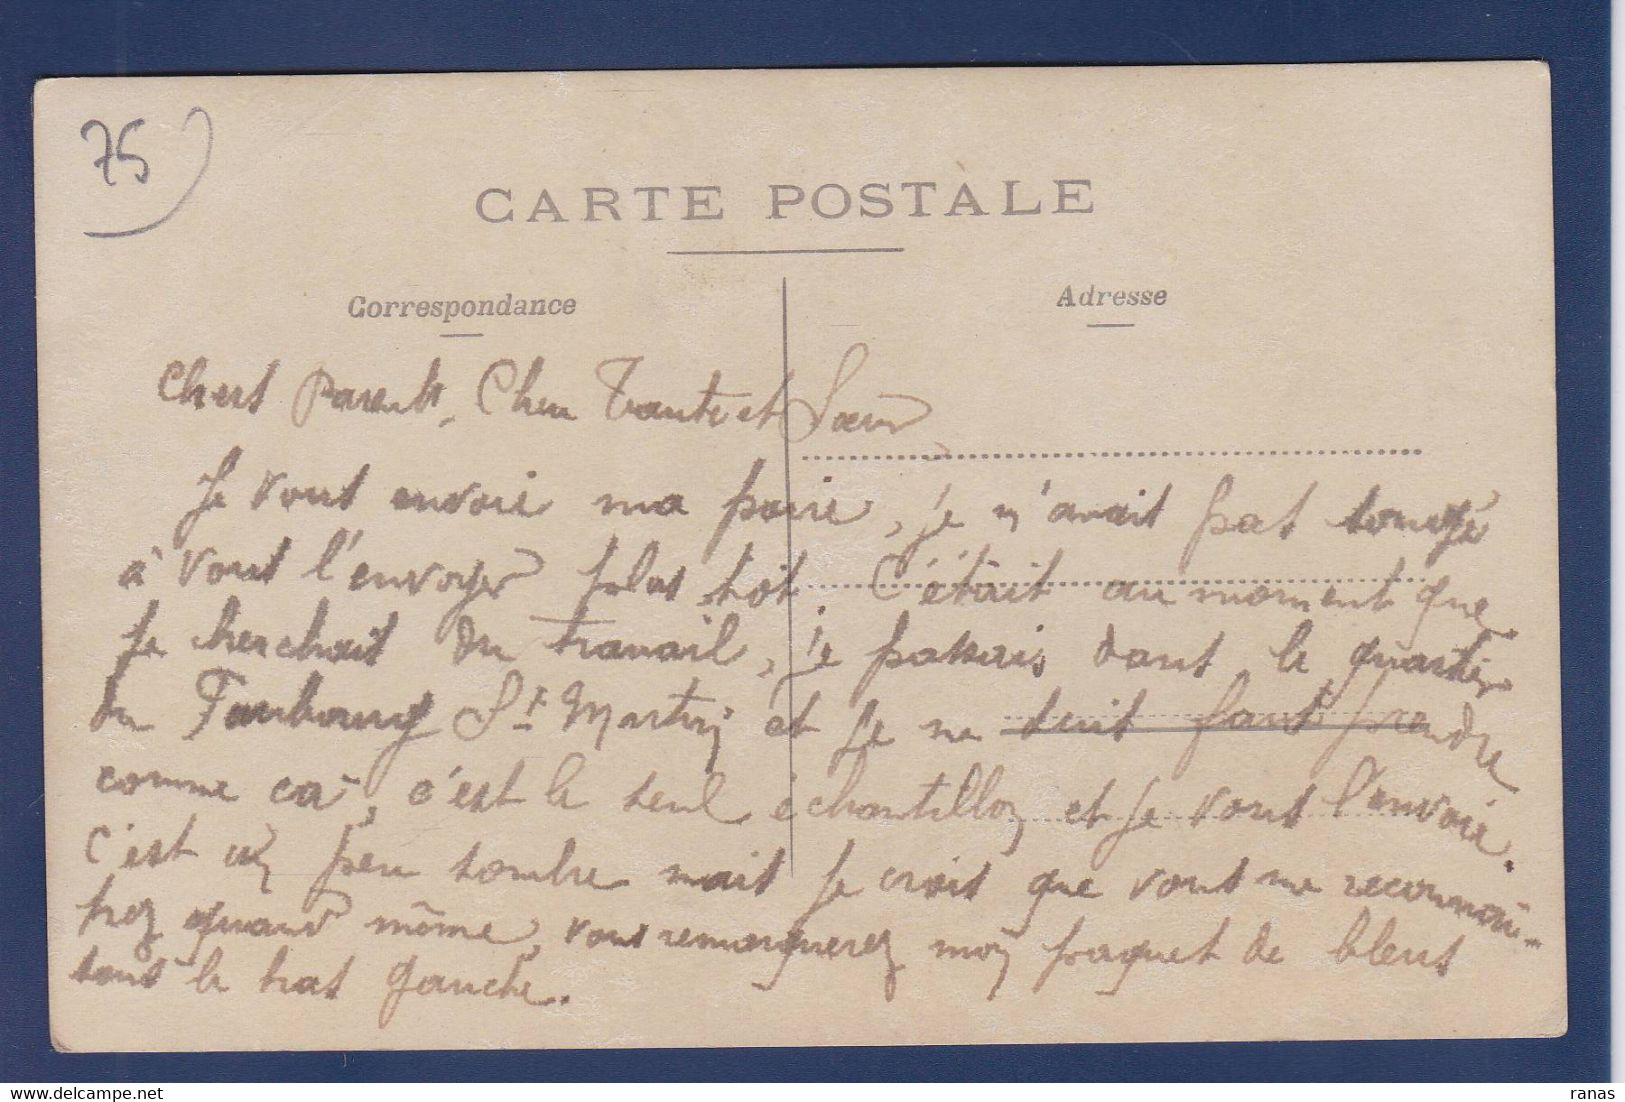 75
CARTE POSTALE
Correspondance
Adresse
Chers Parents, Cher Tante et Sœur
Je vous envoie ma poire, je n'avait pas songé
à vous l'envoyer plus tôt. C'était au moment que
je cherchait du travail, je passais dans le quartier
du Faubourg St Martin et je me suis fait prendre
comme ca, c'est le seul échantillon et je vous l'envoie.
c'est un peu sombre mais je crois que vous me reconnaî-
trez quand même, vous remarquerez mon paquet de bleus
sous le bras gauche.
delcampe.net
ranas